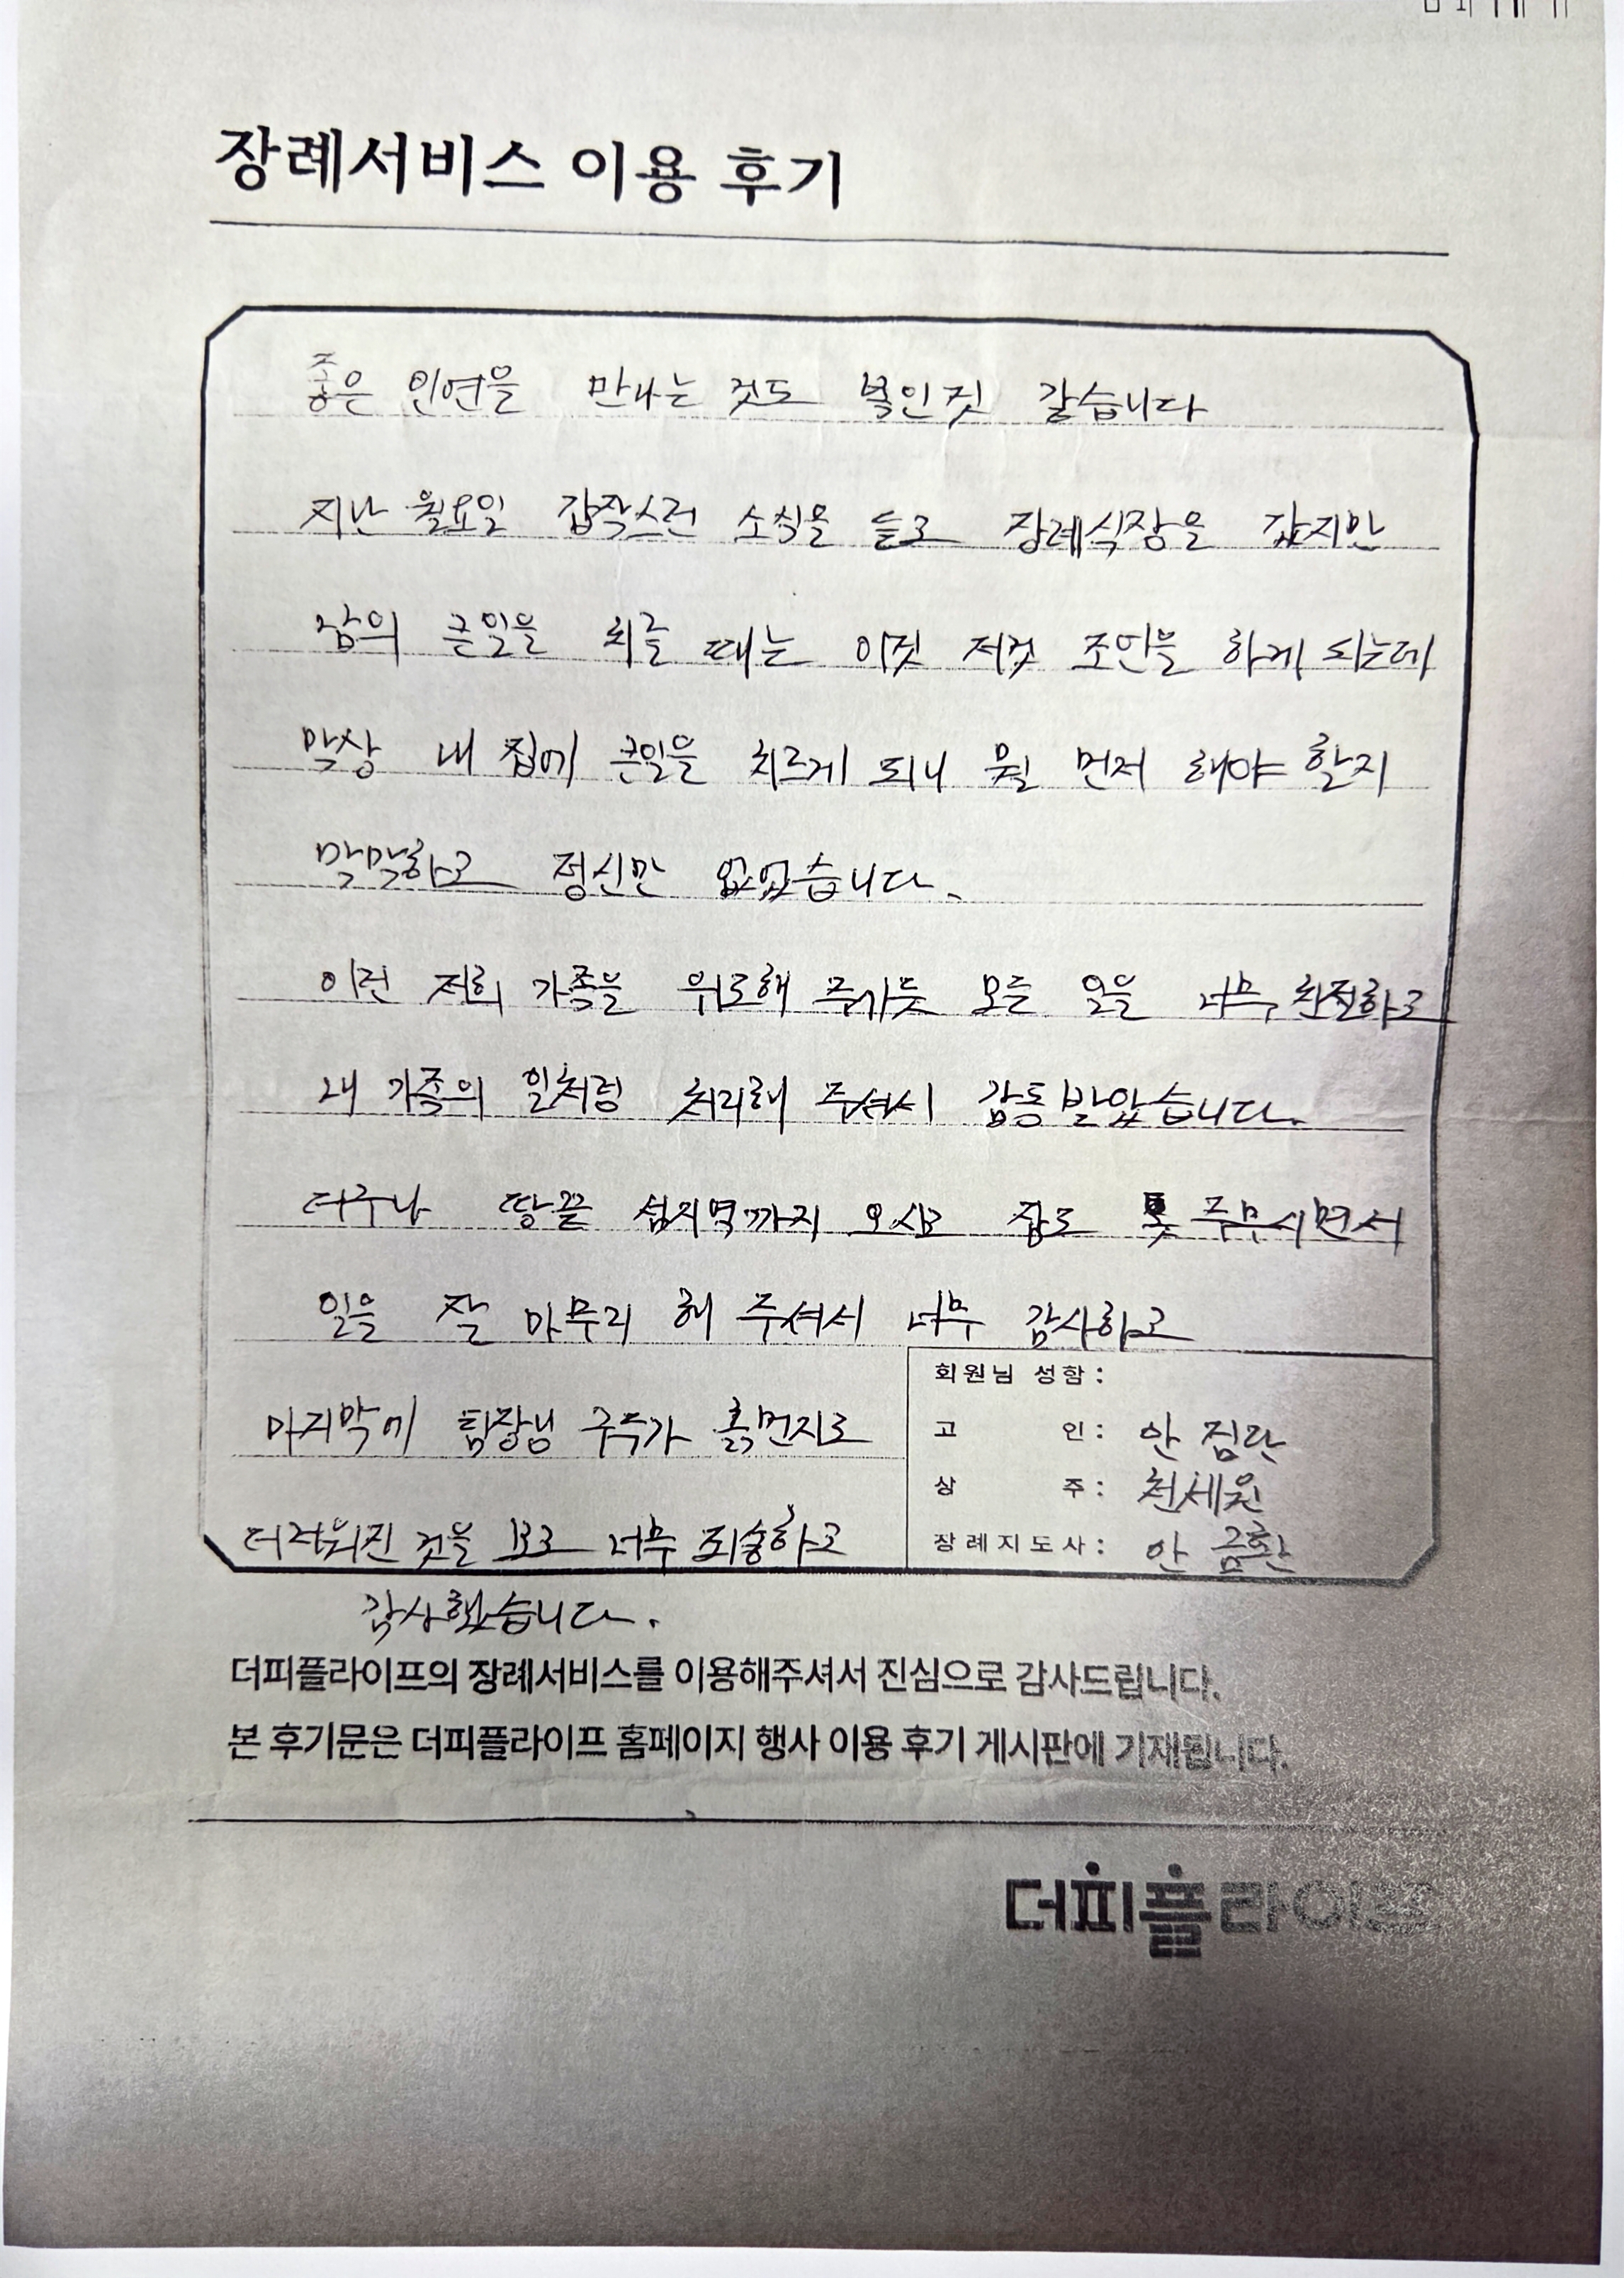 장례서비스 이용 후기
좋은 인연을 만나는 것도 복인 것 같습니다
지난 월요일 갑작스런 소식을 듣고 장례식장을 갔지만
남의 큰일을 치를 때는 이것 저것 조언을 하게 되는데
막상 내 집에 큰일을 치르게 되니 뭘 먼저 해야 할지
막막하고 정신만 없었습니다.
이런 저희 가족을 위로해 주기듯 모든 일을 너무 친절하고
내 가족의 일처럼 처리해 주셔서 감동 받았습니다.
더구나 땅끝 섬지역까지 오시고 잠도 못 주무시면서
일을 잘 마무리 해 주셔서 너무 감사하고
마지막에 팀장님 구두가 흙먼지로
더러워진 것을 보고 너무 죄송하고
감사했습니다.
회원님 성함:
고 인: 안 점란
상 주: 천세원
장례지도사: 안 금환
더피플라이프의 장례서비스를 이용해주셔서 진심으로 감사드립니다.
본 후기문은 더피플라이프 홈페이지 행사 이용 후기 게시판에 기재됩니다.
더피플라이프